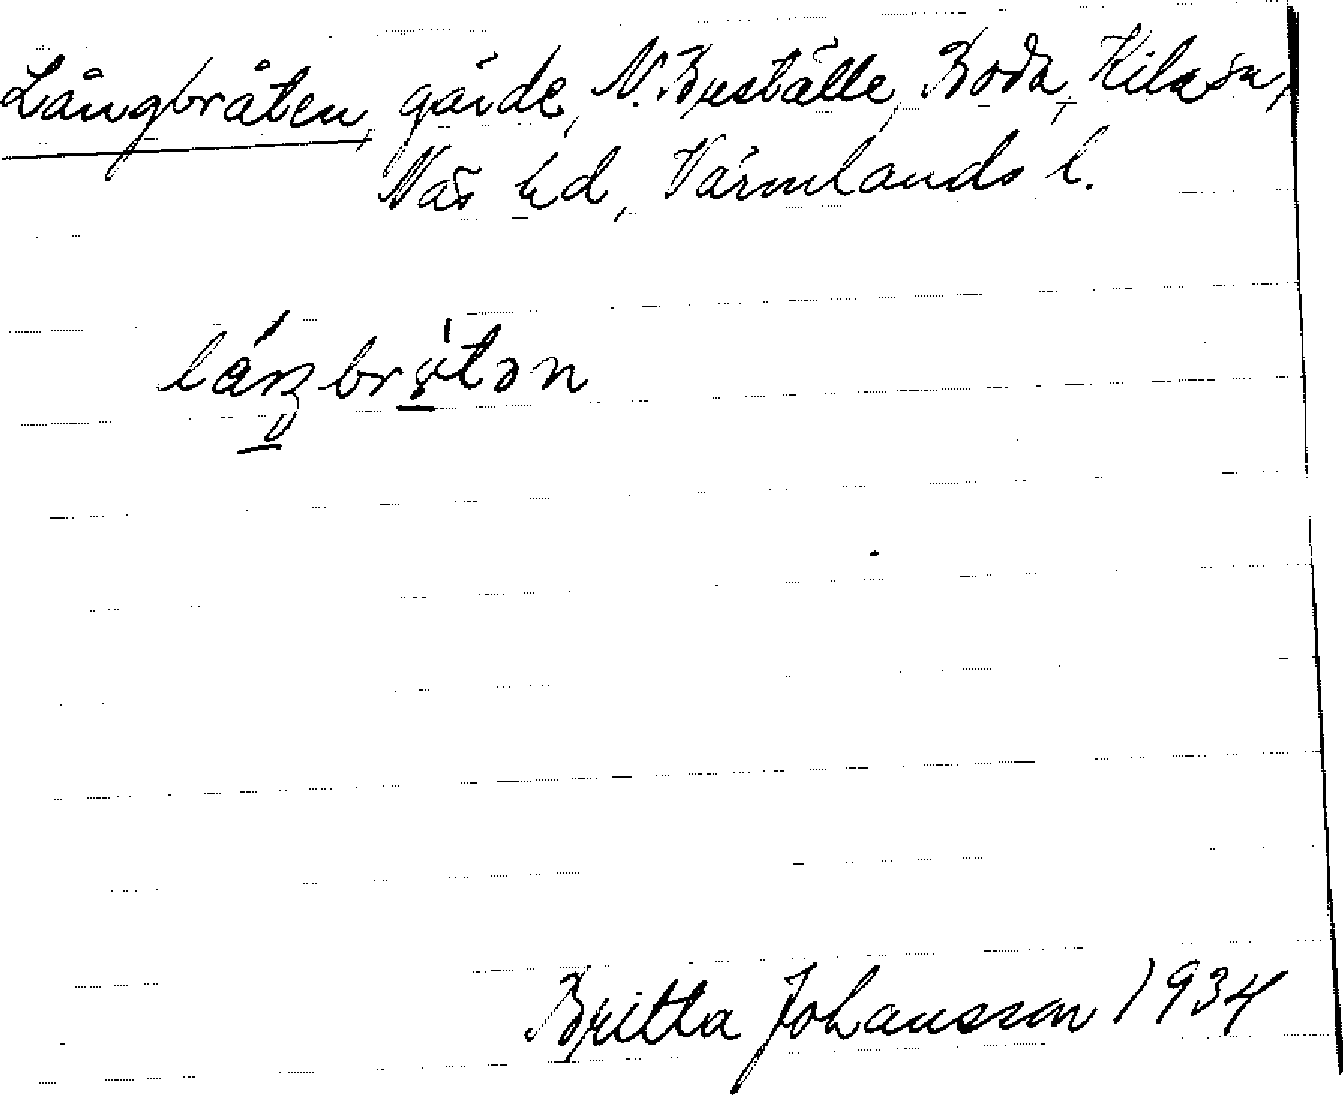 Långbråten, gärde, N. Buställe, Boda, Kila sn,
Näs hd, Värmlands l.
Britta Johansson 1934